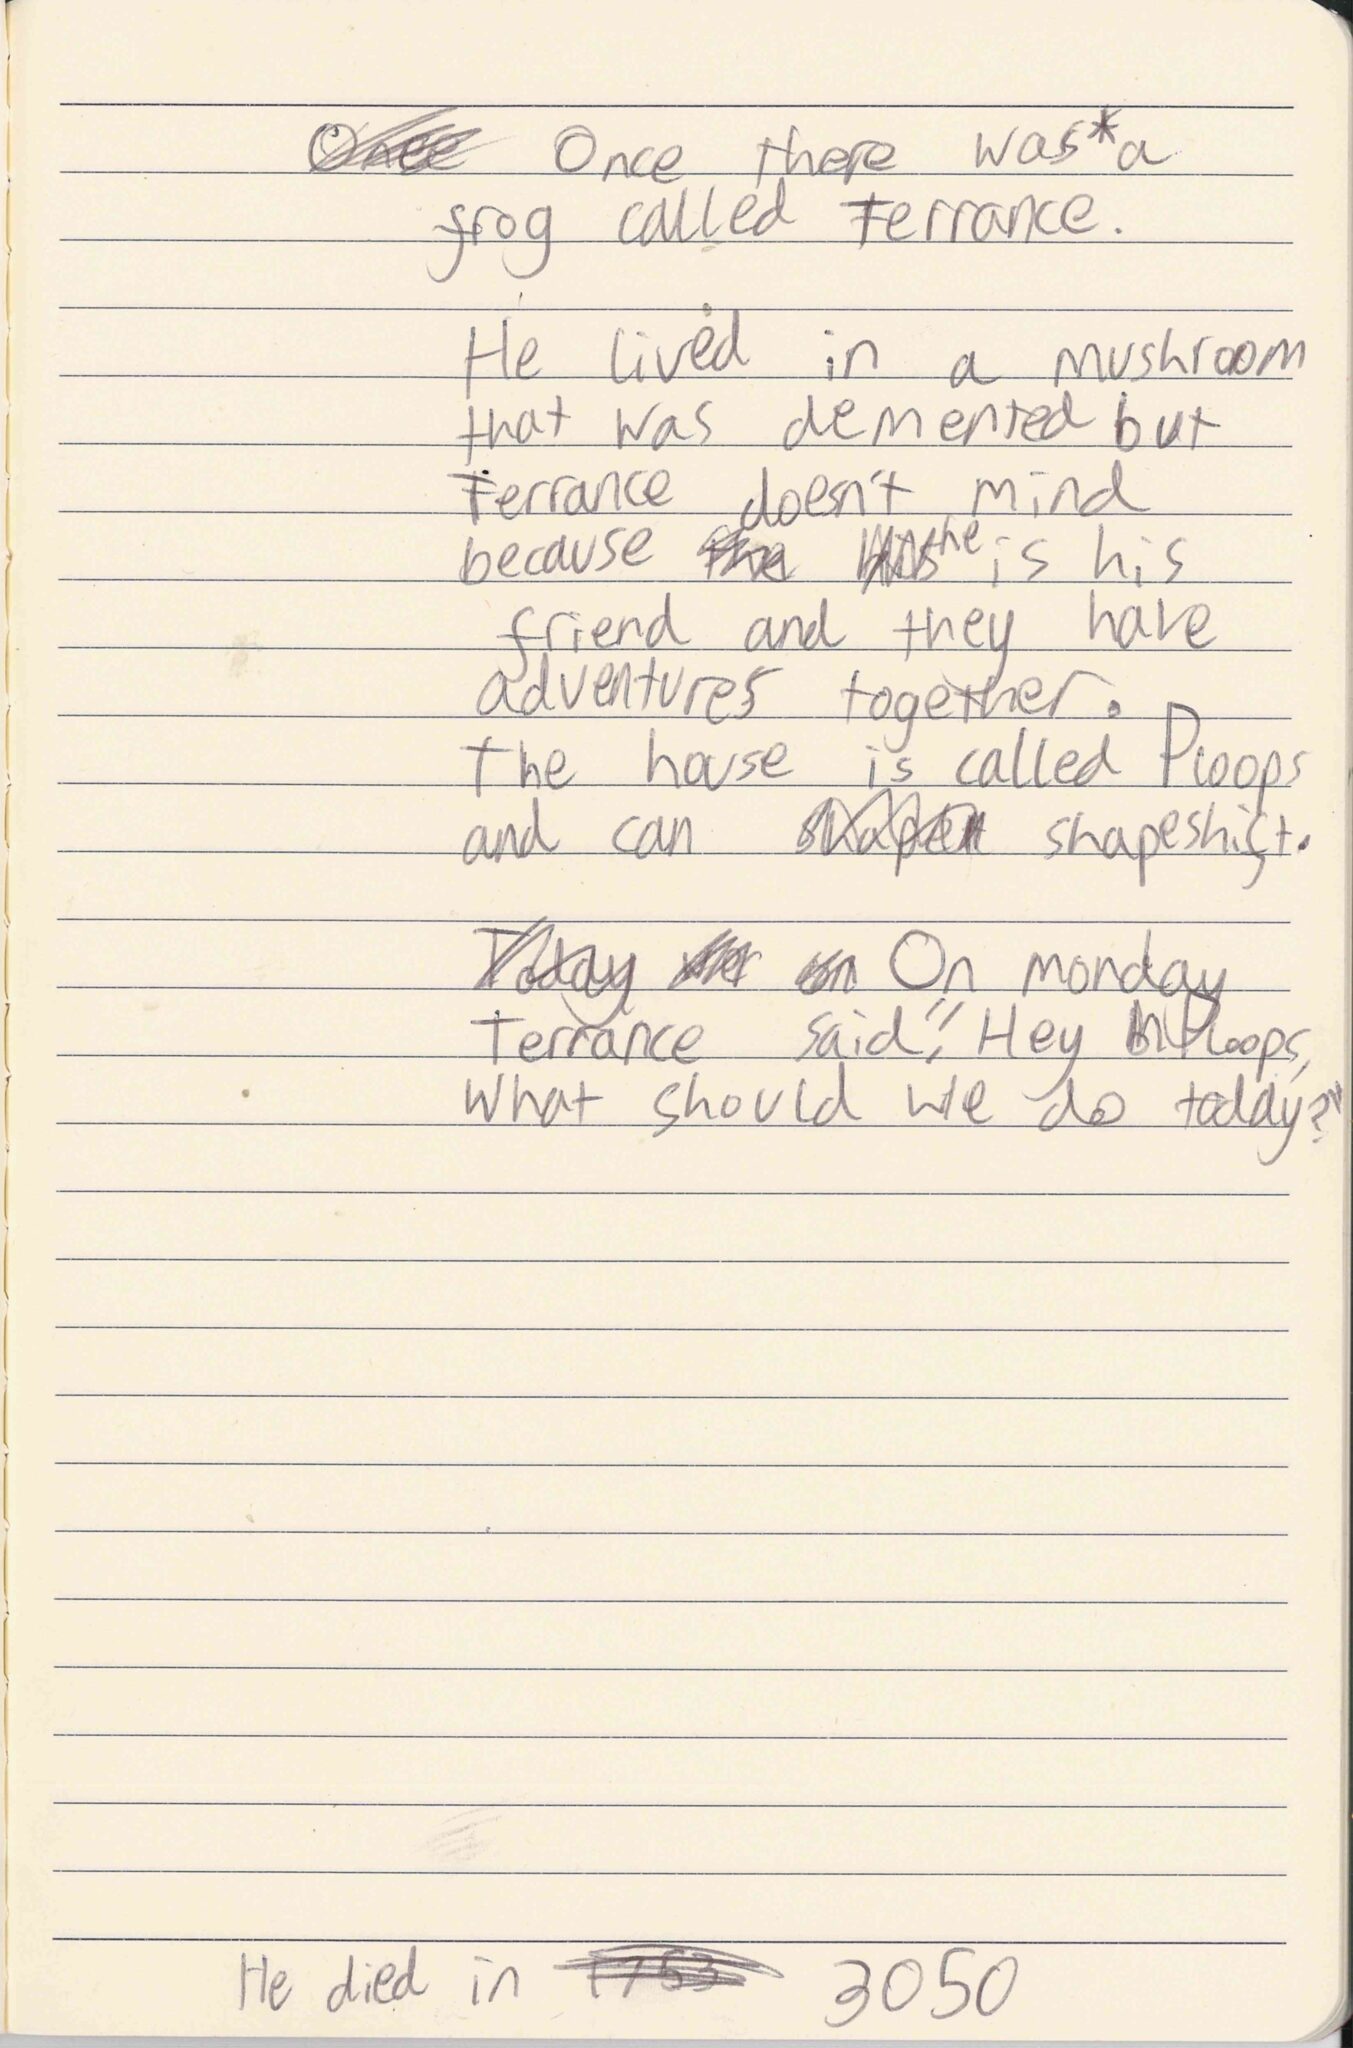 Once Once there was*a
frog called Terrance.
He lived in a mushroom
that was demented but
Terrance doesn't mind
because the his he is his
friend and they have
adventures together.
The house is called Ploops
and can shapeshift.
Today On monday
Terrance said," Hey Ploops,
What should we do today?"
He died in 1753 3050